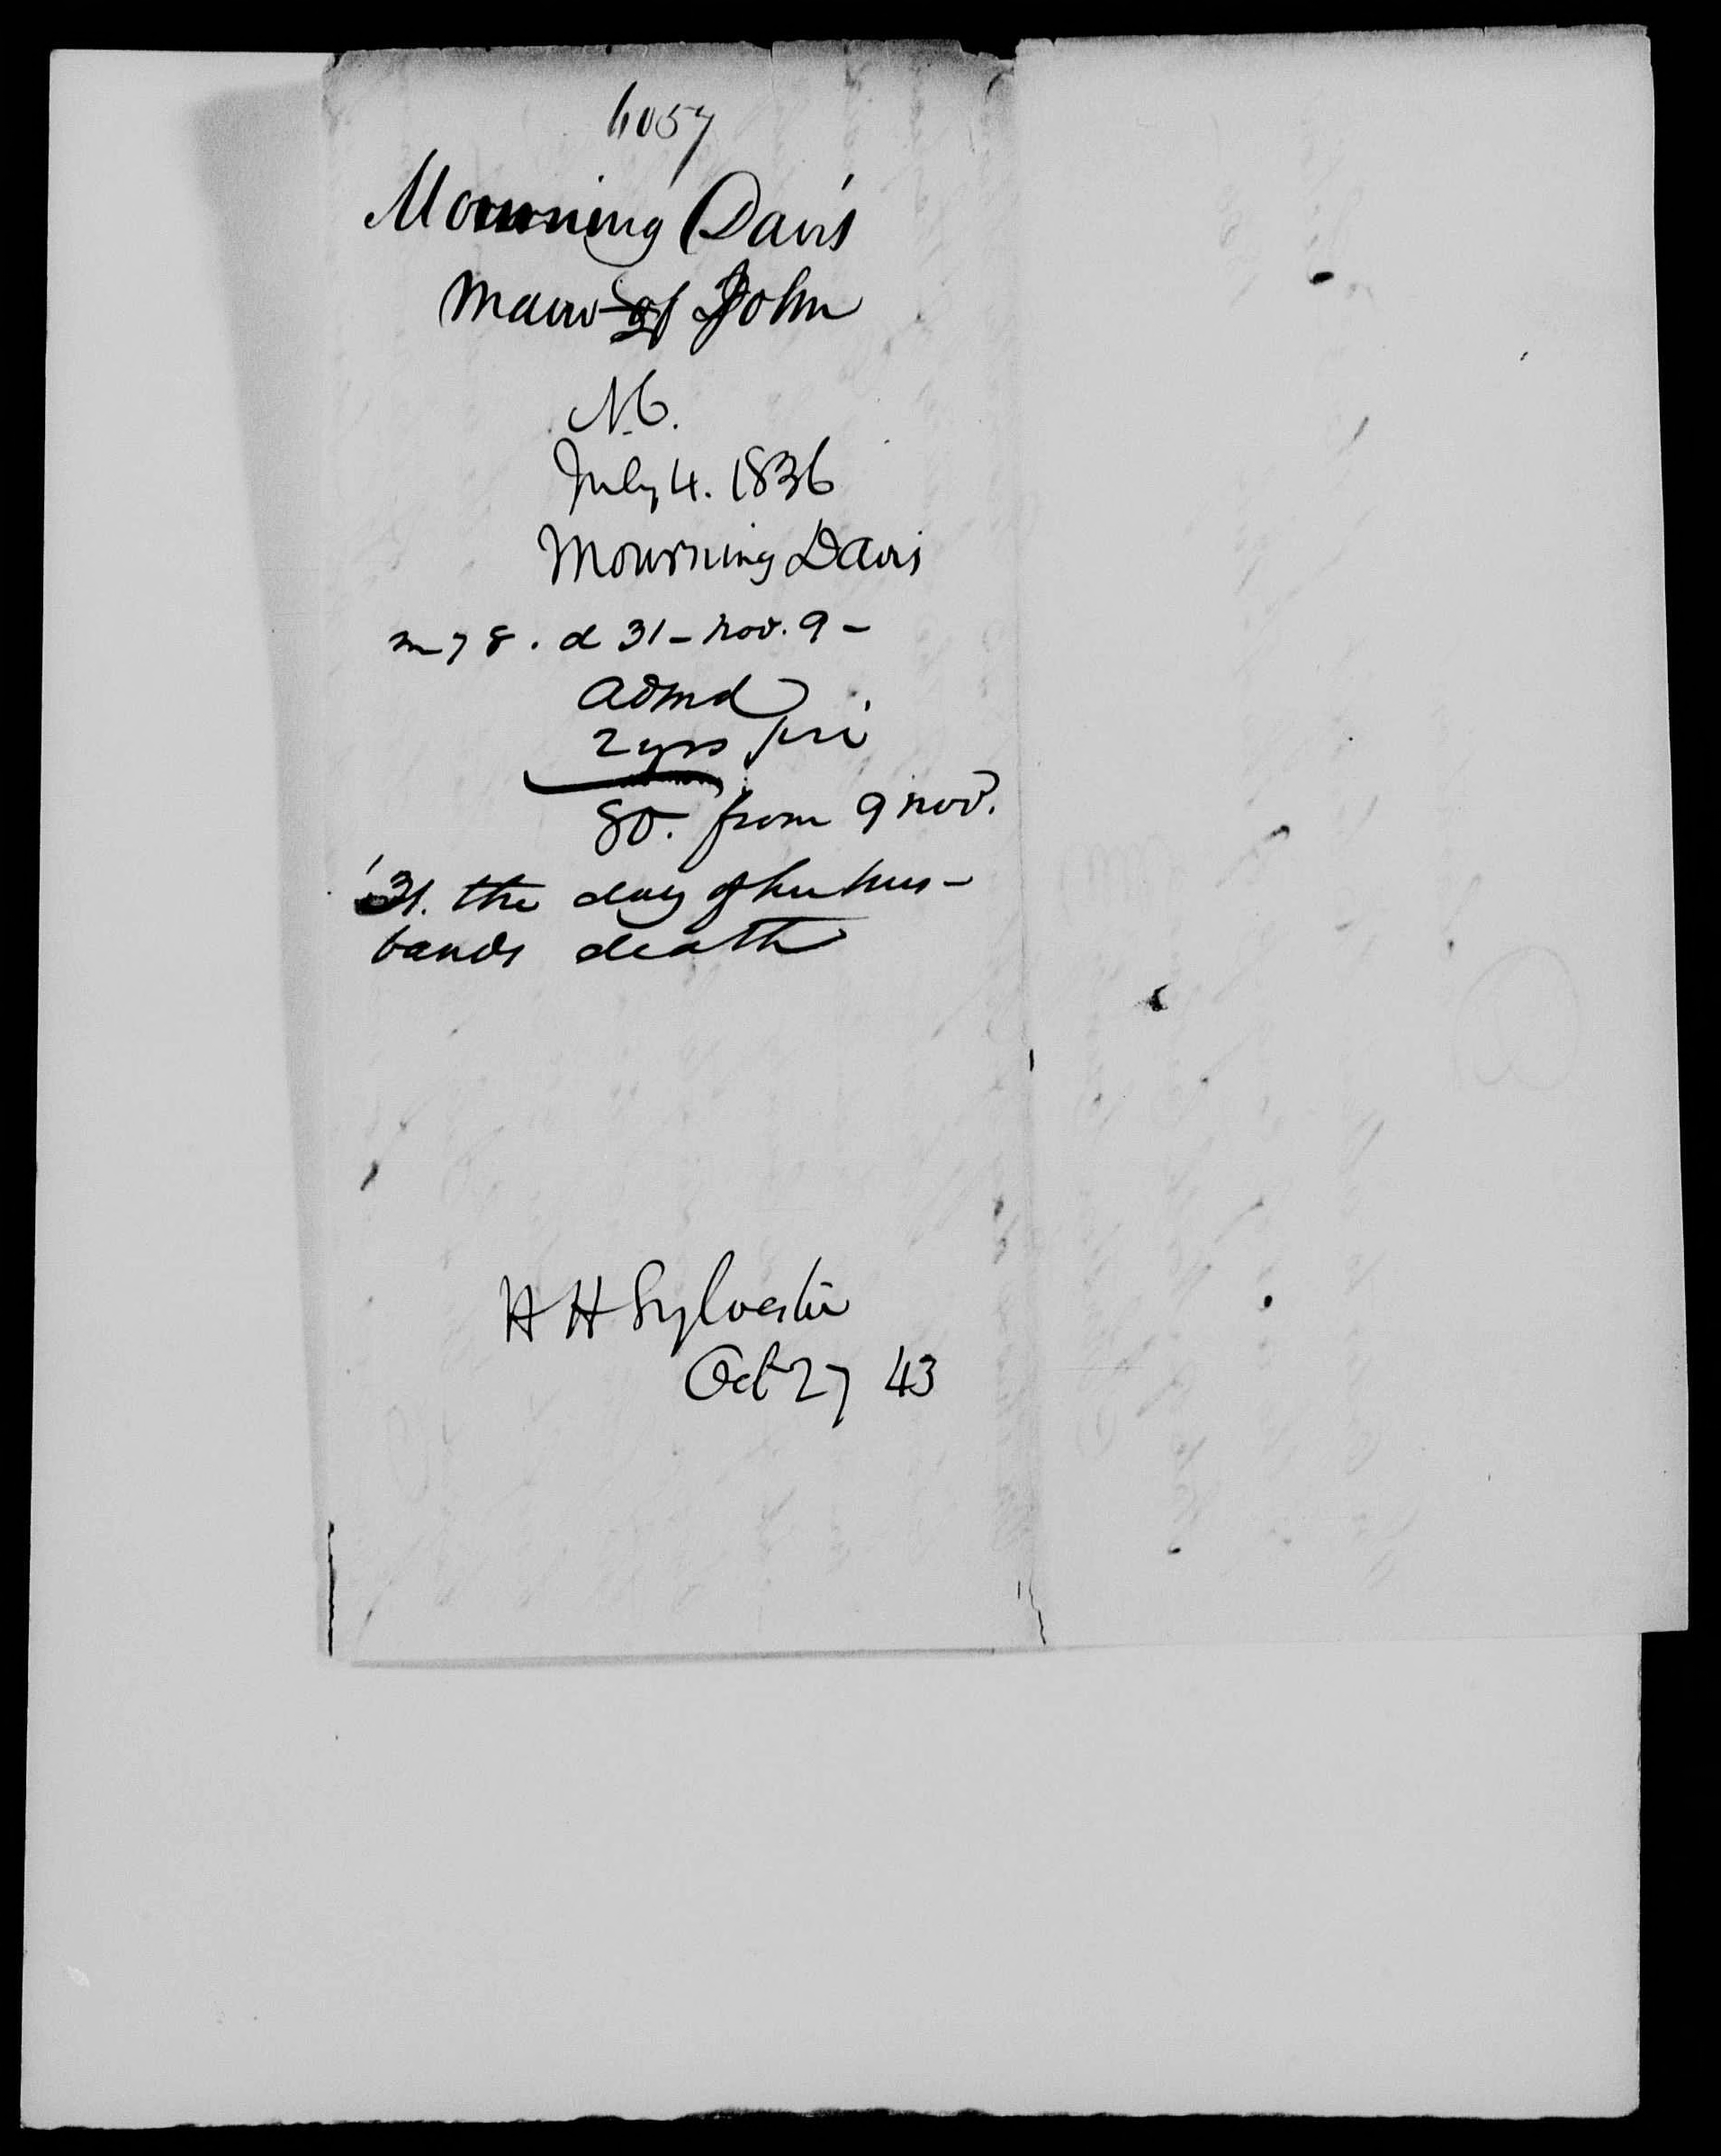 6057
Mourning Davis
of John
N.C.
July 4. 1836
Mourning Davis
m 78. d 31 - Nov. 9 -
admd
2 yrs pri
80. from 9 Nov.
'31. the day of her hus-
bands death
H H Sylvester
Oct 27 43